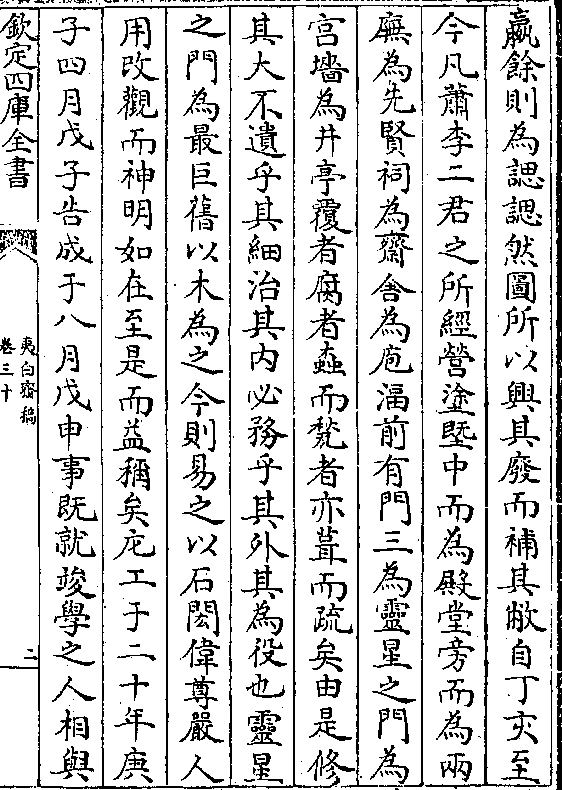 羸餘則為諰諰然圖所以興其廢而補其敝自丁亥至
今凡蕭李二君之所經營塗塈中而為殿堂旁而為兩
廡為先賢祠為齋舍為庖湢前有門三為靈星之門為
宮墻為井亭覆者腐者蠧而甃者亦葺而疏矣由是修
其大不遺乎其細治其内必務乎其外其為役也靈星
之門為最巨舊以木為之今則易之以石閎偉尊嚴人
用改觀而神明如在至是而益稱矣庀工于二十年庚
子四月戊子告成于八月戊申事既就竣學之人相與
欽定四庫全書
夷白齋稿
卷三十
二